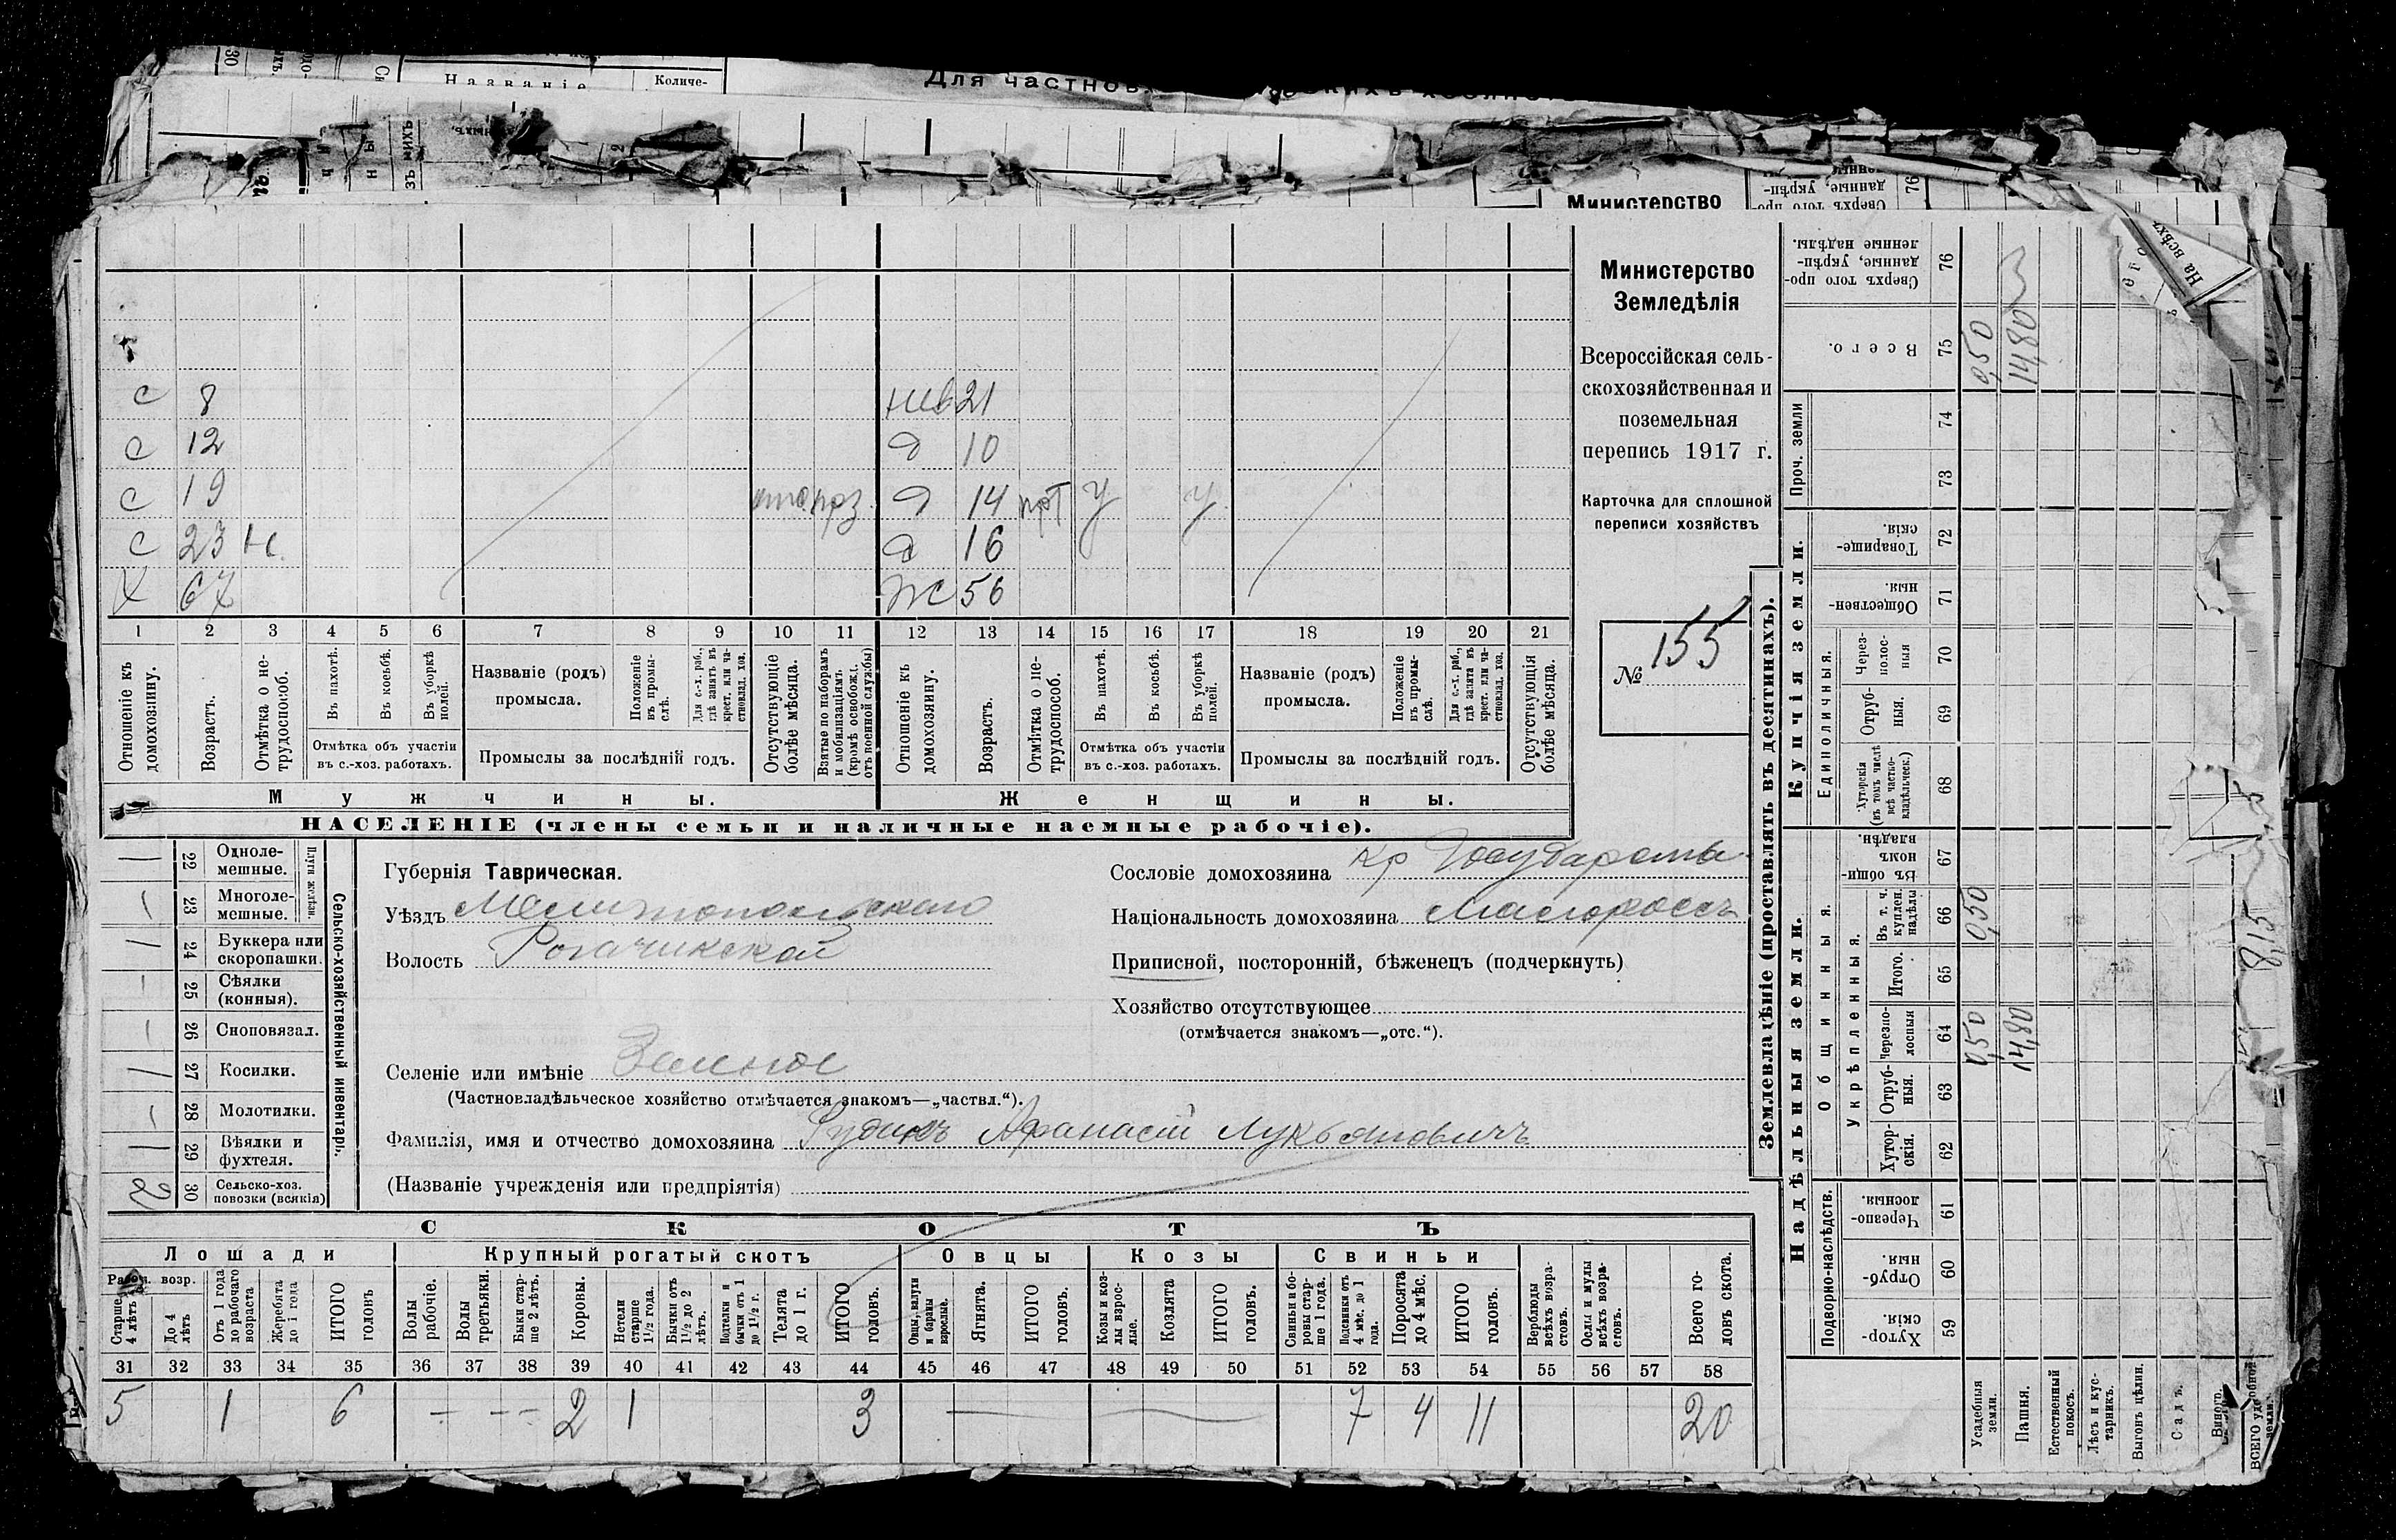 Названіе
Количе-
Для частнов
Министерство
Министерство
Земледѣлія
Всероссійская сель-
скохозяйственная и
поземельная
перепись 1917 г.
Карточка для сплошной
переписи хозяйствъ
№ 155
с 8
нев 21
с 12
д 10
с 19
отс прз.
д 14 прт у у
с 23 н.
д 16
х 67
ж 56
1 2 3 4 5 6 7 8 9 10 11 12 13 14 15 16 17 18 19 20 21
Отношеніе къ домохозяину.
Возрастъ.
Отмѣтка о не-трудоспособ.
Въ пахотѣ.
Въ косьбѣ.
Въ уборкѣ полей.
Отмѣтка объ участіи
въ с.-хоз. работахъ.
Названіе (родъ)
промысла.
Положеніе въ промы-слѣ.
Для с.-х. раб., гдѣ занятъ въ крест. или ча-стновлад. хоз.
Промыслы за послѣдній годъ.
Отсутствующіе болѣе мѣсяца.
Взятые по наборамъ и мобилизаціямъ (кромѣ освобож. отъ военной службы)
Отношеніе къ домохозяину.
Возрастъ.
Отмѣтка о не-трудоспособ.
Въ пахотѣ.
Въ косьбѣ.
Въ уборкѣ полей.
Отмѣтка объ участіи
въ с.-хоз. работахъ.
Названіе (родъ)
промысла.
Положеніе въ промы-слѣ.
Для с.-х. раб., гдѣ занята въ крест. или ча-стновлад. хоз.
Промыслы за послѣдній годъ.
Отсутствующія болѣе мѣсяца.
Мужчины.
Женщины.
НАСЕЛЕНІЕ (члены семьи и наличные наемные рабочіе).
22 Однолемешные.
23 Многолемешные.
Плуги желѣзн.
24 Буккера или скоропашки.
25 Сѣялки (конныя).
26 Сноповязал.
27 Косилки.
28 Молотилки.
29 Вѣялки и фухтеля.
2 30 Сельско-хоз. повозки (всякія)
Сельско-хозяйственный инвентарь.
Губернія Таврическая.
Уѣздъ Мелитопольскаго
Волость Рогачикской
Селеніе или имѣніе Зеленое
(Частновладѣльческое хозяйство отмѣчается знакомъ—„частвл.“).
Фамилія, имя и отчество домохозяина Рудикъ Афанасій Лукьяновичъ
(Названіе учрежденія или предпріятія)
Сословіе домохозяина кр Государств
Національность домохозяина Малороссъ
Приписной, посторонній, бѣженецъ (подчеркнуть)
Хозяйство отсутствующее
(отмѣчается знакомъ—„отс.“).
СКОТЪ
Лошади
Крупный рогатый скотъ
Овцы
Козы
Свиньи
Рабоч. возр.
Старше 4 лѣтъ
До 4 лѣтъ
Отъ 1 года до рабочаго возраста
Жеребята до 1 года
ИТОГО головъ
Волы рабочіе.
Волы третьяки.
Быки стар-ше 2 лѣтъ.
Коровы.
Нетели старше 1½ года.
Бычки отъ 1½ до 2 лѣтъ.
Подтелки и бычки отъ 1 до 1½ г.
Телята до 1 г.
ИТОГО головъ.
Овцы, валухи и бараны взрослые.
Ягнята.
ИТОГО головъ.
Козы и коз-лы взрос-лые.
Козлята
ИТОГО головъ.
Свиньи и бо-ровы стар-ше 1 года.
Подсвинки отъ 4 мѣс. до 1 года.
Поросята до 4 мѣс.
ИТОГО головъ.
Верблюды всѣхъ возра-стовъ.
Ослы и мулы всѣхъ возра-стовъ.
Всего го-ловъ скота.
31 32 33 34 35 36 37 38 39 40 41 42 43 44 45 46 47 48 49 50 51 52 53 54 55 56 57 58
5 1 6 — — — 2 1 3 — — 7 4 11 20
Землевладѣніе (проставлять въ десятинахъ).
Надѣльныя земли.
Купчія земли.
Проч. земли
Подворно-наслѣдств.
Общинныя.
Укрѣпленныя.
Единоличныя.
Хутор-скія. 59
Отруб-ныя. 60
Черезпо-лосныя. 61
Хутор-скія. 62
Отруб-ныя. 63
Черезпо-лосныя 64
Итого. 65
Въ т. ч. куплен. надѣлы 66
Въ общин-номъ владѣн. 67
Хуторскія (въ томъ числѣ всѣ частно-владѣльческ.) 68
Отруб-ныя. 69
Через-полос-ныя 70
Обществен-ныя. 71
Товарище-скія. 72
73
74
Всего. 75
Сверхъ того про-данные, укрѣп-ленные надѣлы. 76
Усадебныя земли.
0,50 0,50 0,50
Пашня.
14,80 14,80 3
Естественный покосъ.
Лѣсъ и кус-тарникъ.
Выгонъ цѣлин.
Садъ.
Виногр.
ВСЕГО удобной земли.
815
На всѣхъ